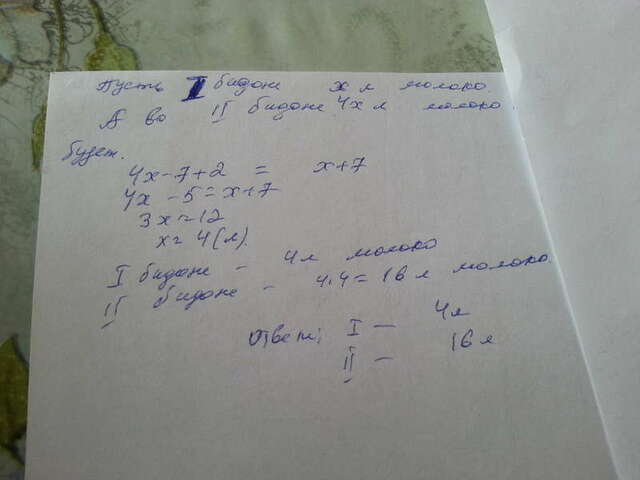 Пусть I бидоне x л молоко.
А во II бидоне 4x л молоко.
будет.
4x-7+2 = x+7
4x-5=x+7
3x=12
x=4(л).
I бидоне - 4л молоко
II бидоне - 4.4=16л молоко
Ответ: I — 4л
II — 16л